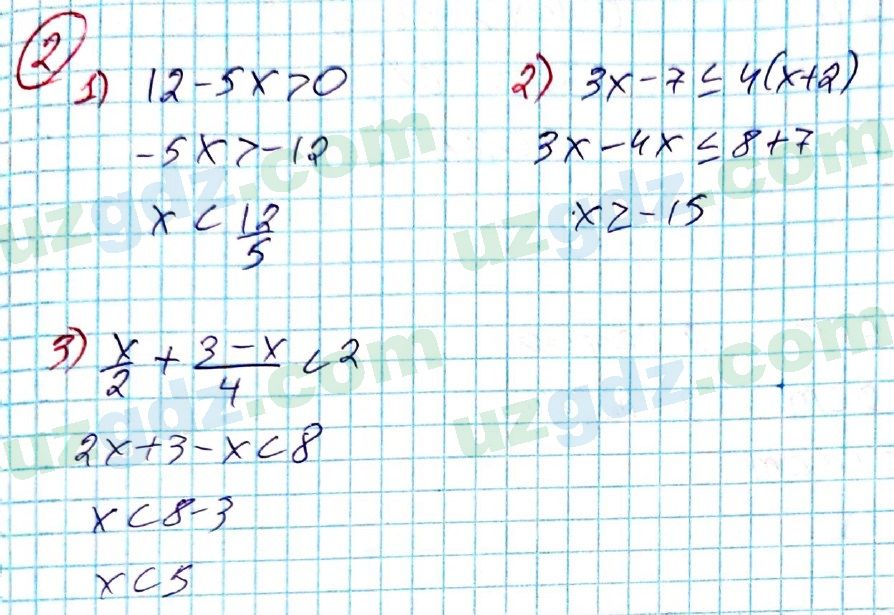 2
1) 12-5x>0
-5x>-12
x<12/5
2) 3x-7≤4(x+2)
3x-4x≤8+7
x≥-15
3) x/2 + 3-x/4 <2
2x+3-x<8
x<8-3
x<5
uzgdz.com
uzgdz.com
uzgdz.com
uzgdz.com